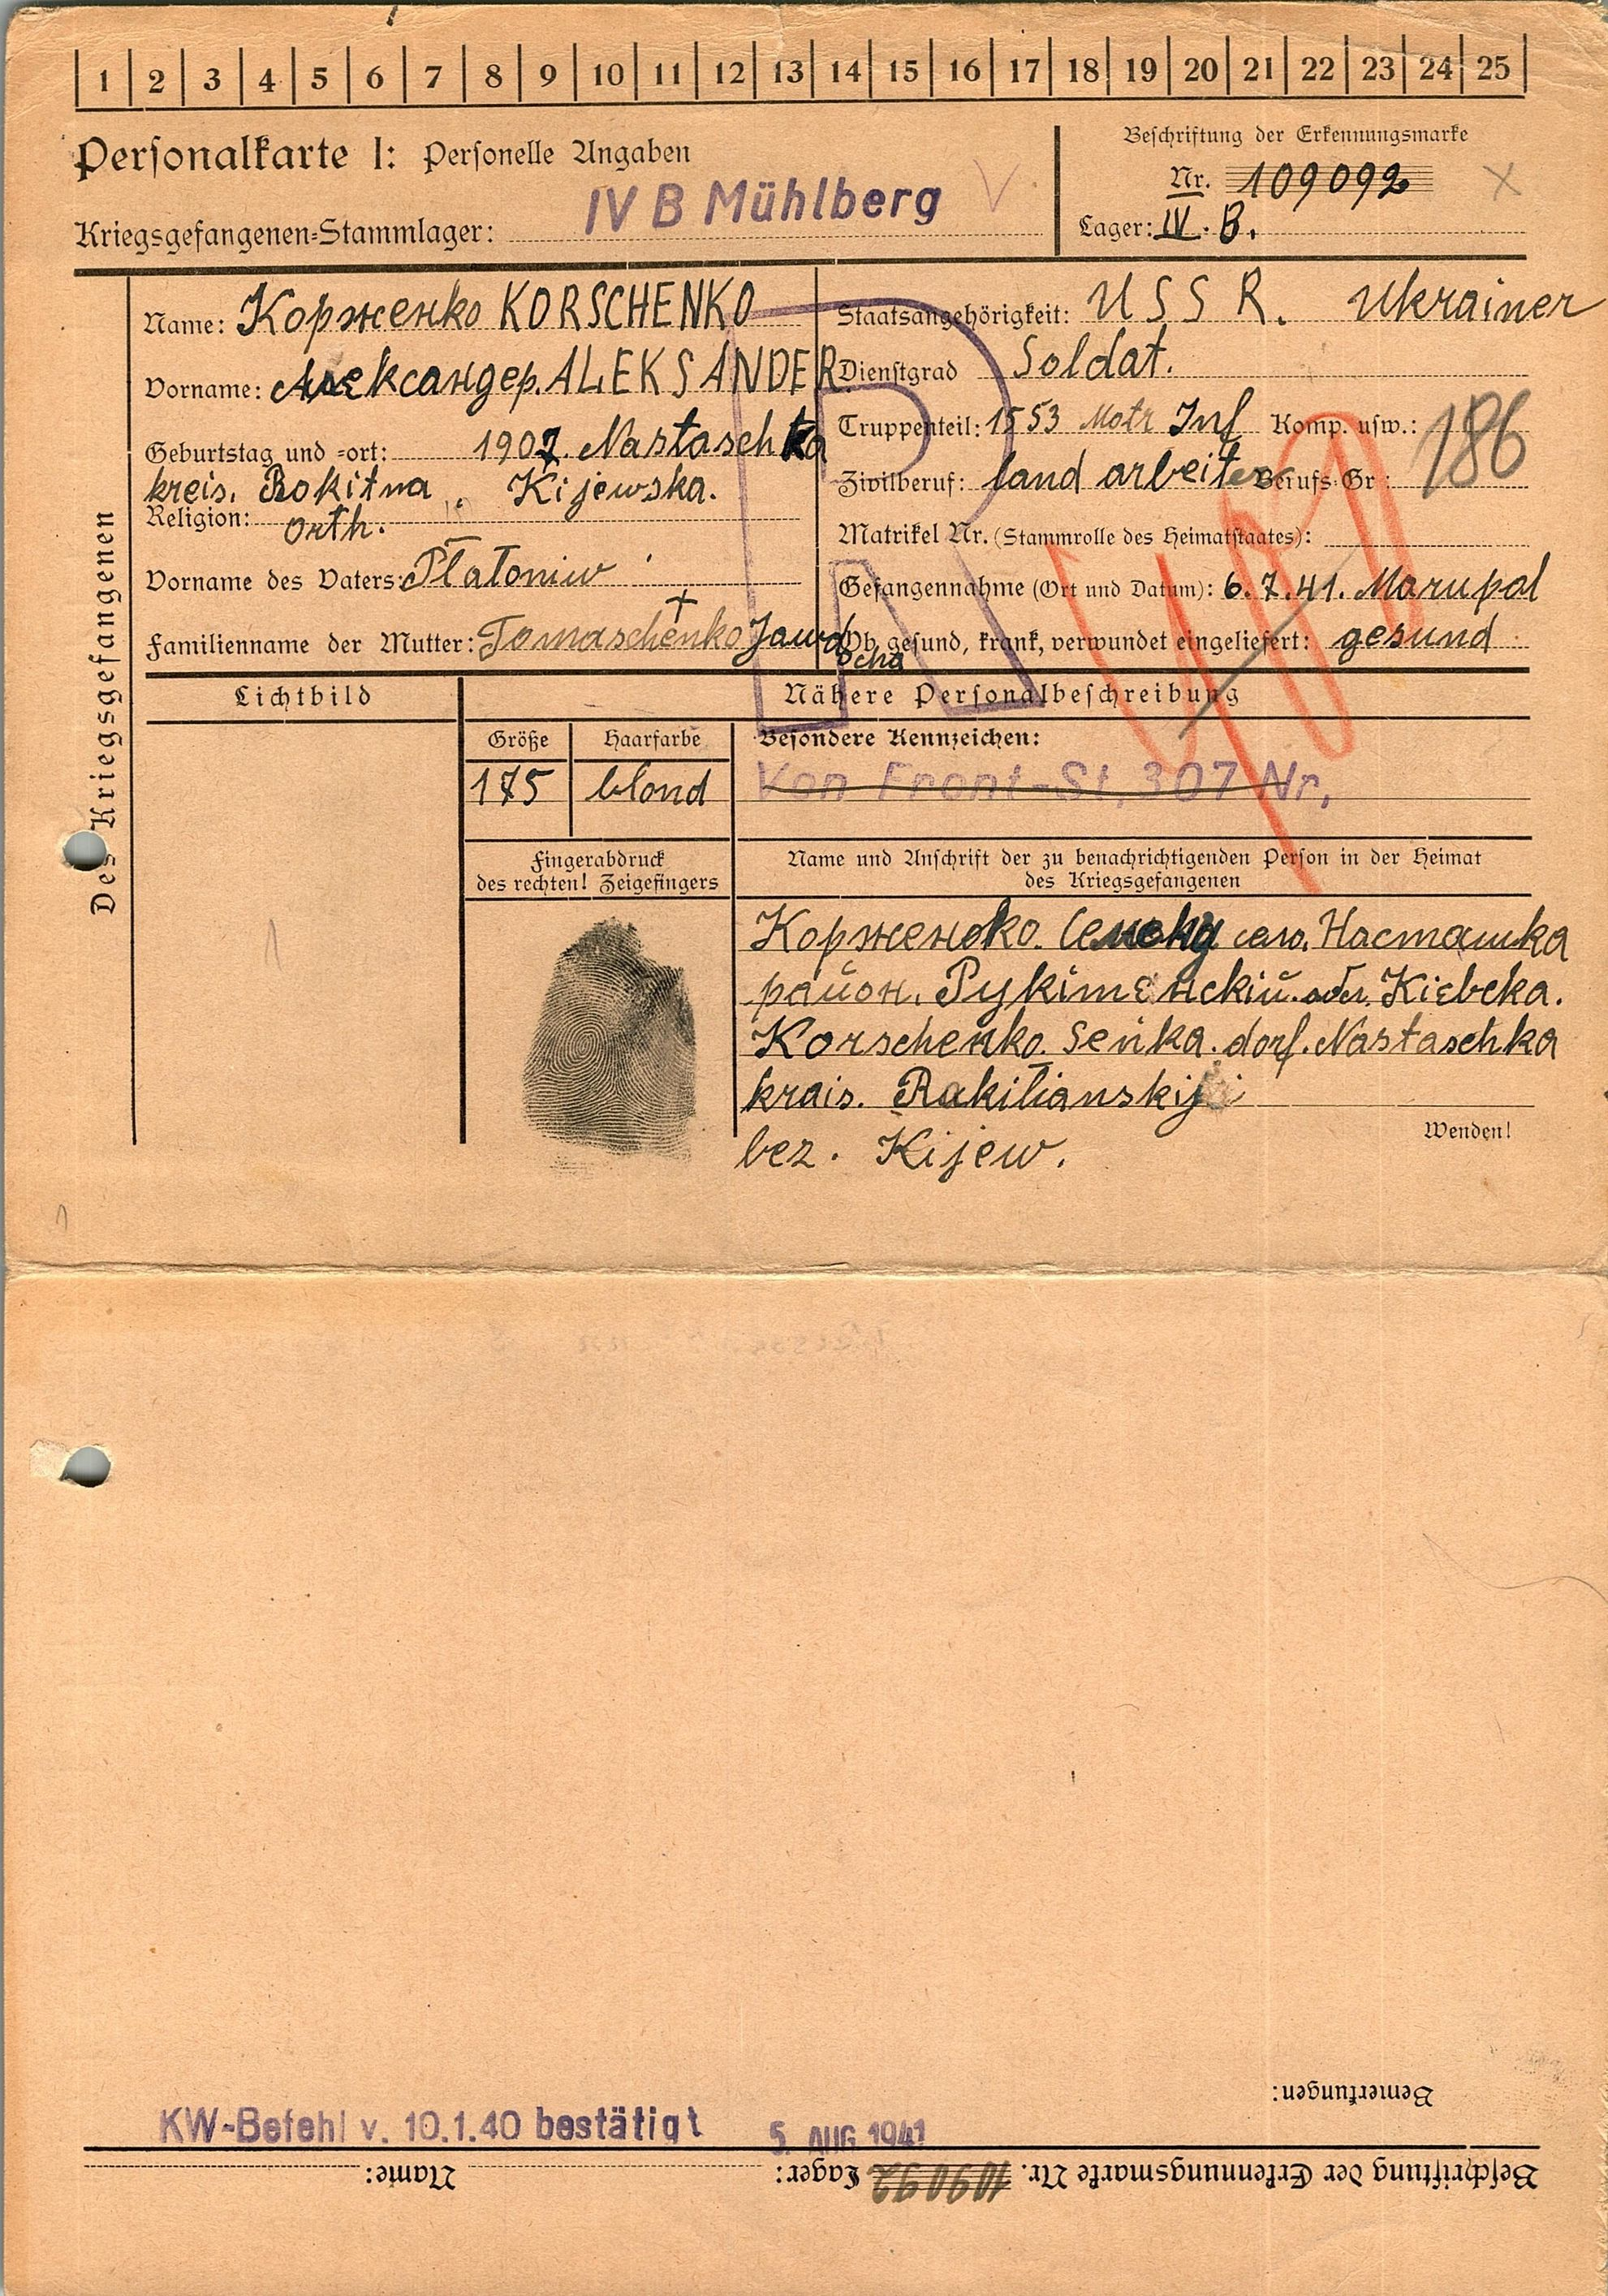 1 2 3 4 5 6 7 8 9 10 11 12 13 14 15 16 17 18 19 20 21 22 23 24 25
Personalkarte I: Personelle Angaben
Beschriftung der Erkennungsmarke
Nr. 109092
Kriegsgefangenen-Stammlager: IV B Mühlberg
Lager: IV. B.
Des Kriegsgefangenen
Name: Корженко KORSCHENKO
Vorname: Александер. ALEKSANDER
Geburtstag und -ort: 1907. Nastaschka
kreis. Rokitna, Kijewska.
Religion: orth.
Vorname des Vaters: Platoniw
Familienname der Mutter: Tomaschenko Jawdocha
Staatsangehörigkeit: USSR. Ukrainer
Dienstgrad Soldat.
Truppenteil: 1553 Motr Inf Komp. usw.:
186
Zivilberuf: land arbeiter Berufs-Gr.:
Matrikel Nr. (Stammrolle des Heimatstaates):
Gefangennahme (Ort und Datum): 6.7.41. Marupol
Ob gesund, krank, verwundet eingeliefert: gesund
Lichtbild
Nähere Personalbeschreibung
Größe
Haarfarbe
Besondere Kennzeichen:
175
blond
Von Front-St. 307 Nr.
Fingerabdruck
des rechten! Zeigefingers
Name und Anschrift der zu benachrichtigenden Person in der Heimat
des Kriegsgefangenen
Корженоко. село. Насташка
район. Рукiтенскiй. Кiевска.
Korschenko. Senka. dorf. Nastaschka
krais. Rakitianskij
bez. Kijew.
Wenden!
Bemerkungen:
KW-Befehl v. 10.1.40 bestätigt
5. AUG 1941
Beschriftung der Erkennungsmarke Nr. 109092 Lager: Name: